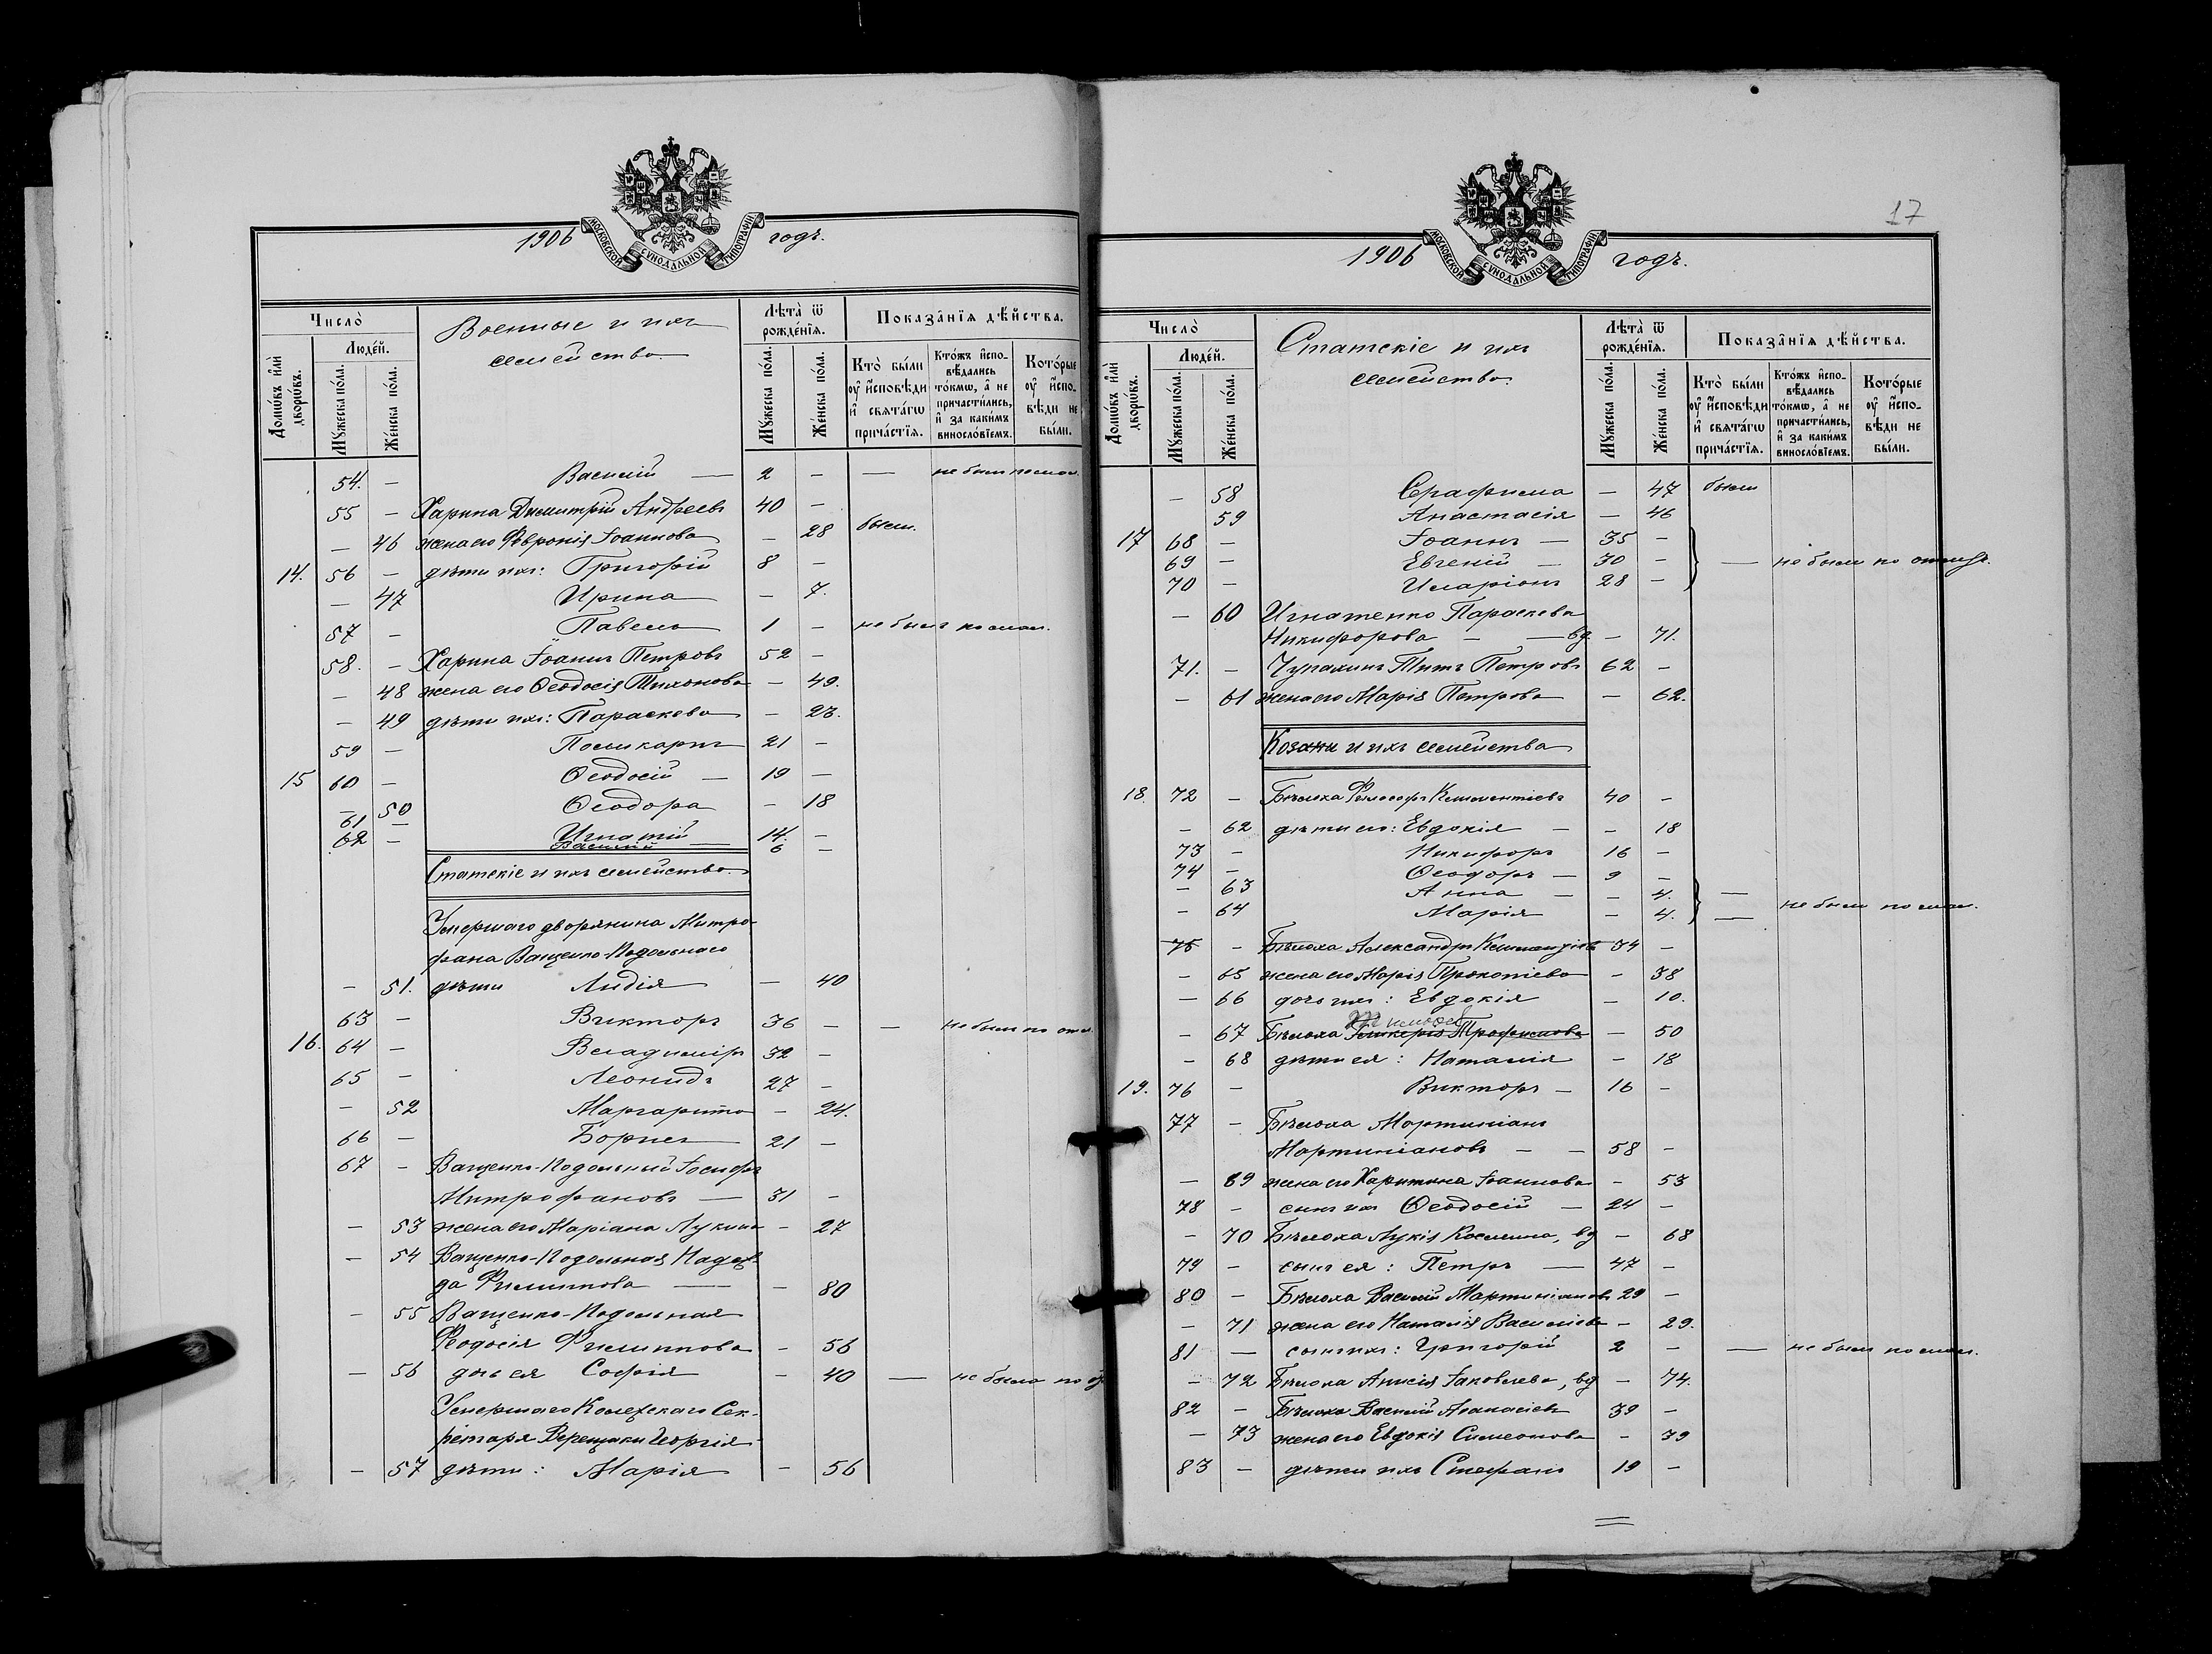 1906 годъ.
МОСКОВСКОЙ СѴНОДАЛЬНОЙ ТИПОГРАФІИ
Число̀
Домѡ́въ и҆лѝ дворѡ́въ.
Люде́й.
Мꙋ́жеска по́ла.
Же́нска по́ла.
Военные и ихъ
семейства.
Лѣта̀ ѿ рожде́нїѧ.
Мꙋ́жеска по́ла.
Же́нска по́ла.
Показа̂нїѧ дѣ́йства.
Кто̀ бы́ли ᲂу҆ и҆сповѣди и҆ свѧта́гѡ прича́стїѧ.
Кто́жъ и҆сповѣ́дались то́кмѡ, а҆ не причасти́лись, и҆ за каки́мъ винослѡ́вїемъ.
Кото́рые ᲂу҆ и҆сповѣди не бы́ли.
54. – Василій — 2 – — не были по мал.
55 – Харина Димитрій Андреевъ 40 –
– 46 жена его Ѳевронія Іоаннова – 28 были.
14. 56 – дѣти ихъ: Григорій 8 –
– 47 Ирина – 7.
57 – Павелъ 1 – не былъ по мал.
58. – Харина Іоаннъ Петровъ 52 –
– 48 жена его Ѳеодосія Тихонова – 49.
– 49 дѣти ихъ: Параскева – 23.
59 – Поликарпъ 21 –
15 60 – Ѳеодосій — 19 —
– 50 Ѳеодора – 18
61 – Игнатій 14. –
62 – Василій — 6 –
Статскіе и ихъ семейства.
Умершаго дворянина Митро-
фана Ващенко-Подольнаго
– 51. дѣти Лидія – 40
63 – Викторъ 36 – – не были по отл.
16. 64 – Владиміръ 32 –
65 – Леонидъ 27 –
– 52 Маргарита – 24.
66 – Борисъ 21 –
67 – Ващенко-Подольный Іосифъ
Митрофановъ — 31 –
– 53 жена его Маріана Лукина – 27
– 54 Ващенко-Подольная Надеж-
да Филиппова — – 80
– 55 Ващенко-Подольная
Ѳеодосія Филиппова – 56
– 56 дочь ея Софія – 40 — не была по
Умершаго Коллежскаго Сек-
ретаря Верещаки Георгія
– 57 дѣти: Марія – 56
17
1906 годъ.
МОСКОВСКОЙ СѴНОДАЛЬНОЙ ТИПОГРАФІИ
Число̀
Домѡ́въ и҆лѝ дворѡ́въ.
Люде́й.
Мꙋ́жеска по́ла.
Же́нска по́ла.
Статскіе и ихъ
семейства.
Лѣта̀ ѿ рожде́нїѧ.
Мꙋ́жеска по́ла.
Же́нска по́ла.
Показа̂нїѧ дѣ́йства.
Кто̀ бы́ли ᲂу҆ и҆сповѣди и҆ свѧта́гѡ прича́стїѧ.
Кто́жъ и҆сповѣ́дались то́кмѡ, а҆ не причасти́лись, и҆ за каки́мъ винослѡ́вїемъ.
Кото́рые ᲂу҆ и҆сповѣди не бы́ли.
– 58 Серафима – 47 были
59 Анастасія – 46
17 68 – Іоаннъ — 35 –
69 – Евгеній — 30 – — не были по отлуч.
70 – Иларіонъ 28 –
– 60 Игнатенко Параскева
Никифорова – — вд. – 71.
71. – Чупахинъ Титъ Петровъ 62 –
– 61 жена его Марія Петрова – 62.
Козаки и ихъ семейства
18. 72 – Бѣлоха Климентіевъ 40 –
– 62 дѣти его: Евдокія — – 18
73 – Никифоръ 16 –
74 – Ѳеодоръ – 9 –
– 63 Анна — – 4. —
– 64 Марія – 4. — не были по мал.
75 – Бѣлоха Александръ Климентіевъ 34 –
– 65 жена его Марія Прокопіева – 38
– 66 дочь ихъ: Евдокія – 10.
– 67 Бѣлоха Гликерія Трофимова – 50
– 68 дѣти ея: Наталія – 18
19. 76 – Викторъ – 16 –
77 – Бѣлоха Мартиніанъ
Мартиніановъ – – 58 –
– 69 жена его Харитина Іоаннова – 53
78 – сынъ ихъ Ѳеодосій — 24 –
– 70 Бѣлоха Лукія Космина, вд – 68
79 – сынъ ея: Петръ — 47 –
80 – Бѣлоха Василій Мартиніановъ 29 –
– 71 жена его Наталія Василіева – 29.
81 — сынъ ихъ: Григорій 2 – — не были по мал.
– 72 Бѣлоха Анисія Іаковлева, вд – 74.
82 – Бѣлоха Василій Аѳанасіевъ 39 –
– 73 жена его Евдокія Симеонова – 39
83 – дѣти ихъ Стефанъ 19 –